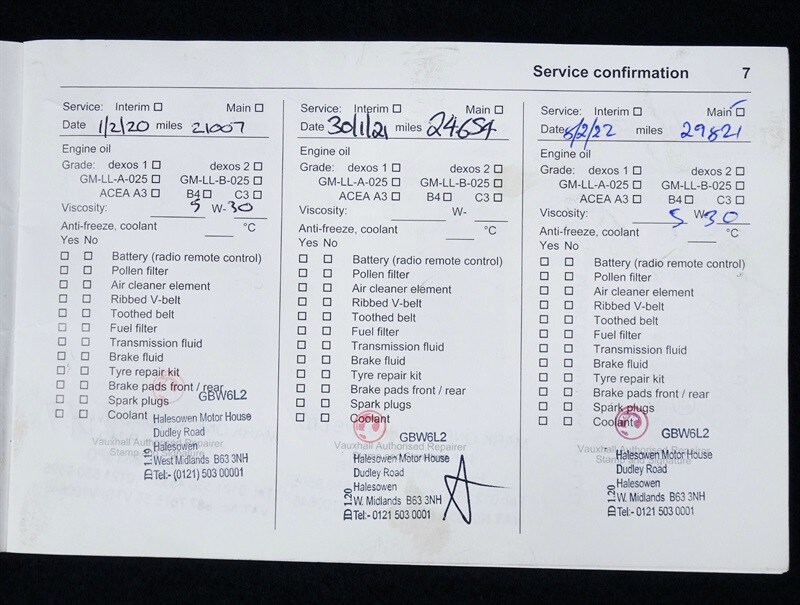 Service confirmation 7
Service: Interim ☐ Main ☐
Date 1/2/20 miles 21007
Engine oil
Grade: dexos 1 ☐ dexos 2 ☐
GM-LL-A-025 ☐ GM-LL-B-025 ☐
ACEA A3 ☐ B4 ☐ C3 ☐
Viscosity: 5 W-30
Anti-freeze, coolant °C
Yes No
☐ ☐ Battery (radio remote control)
☐ ☐ Pollen filter
☐ ☐ Air cleaner element
☐ ☐ Ribbed V-belt
☐ ☐ Toothed belt
☐ ☐ Fuel filter
☐ ☐ Transmission fluid
☐ ☐ Brake fluid
☐ ☐ Tyre repair kit
☐ ☐ Brake pads front / rear
☐ ☐ Spark plugs
☐ ☐ Coolant
GBW6L2
Vauxhall Authorised Repairer
Stamp and Signature
Halesowen Motor House
Dudley Road
Halesowen
West Midlands B63 3NH
Tel:- (0121) 503 00001
ID 1.19
Service: Interim ☐ Main ☐
Date 30/1/21 miles 24654
Engine oil
Grade: dexos 1 ☐ dexos 2 ☐
GM-LL-A-025 ☐ GM-LL-B-025 ☐
ACEA A3 ☐ B4 ☐ C3 ☐
Viscosity: W-
Anti-freeze, coolant °C
Yes No
☐ ☐ Battery (radio remote control)
☐ ☐ Pollen filter
☐ ☐ Air cleaner element
☐ ☐ Ribbed V-belt
☐ ☐ Toothed belt
☐ ☐ Fuel filter
☐ ☐ Transmission fluid
☐ ☐ Brake fluid
☐ ☐ Tyre repair kit
☐ ☐ Brake pads front / rear
☐ ☐ Spark plugs
☐ ☐ Coolant
GBW6L2
Vauxhall Authorised Repairer
Halesowen Motor House
Dudley Road
Halesowen
W. Midlands B63 3NH
Tel:- 0121 503 0001
ID 1.20
Service: Interim ☐ Main ☐
Date 5/2/22 miles 29821
Engine oil
Grade: dexos 1 ☐ dexos 2 ☐
GM-LL-A-025 ☐ GM-LL-B-025 ☐
ACEA A3 ☐ B4 ☐ C3 ☐
Viscosity: 5 W-30
Anti-freeze, coolant °C
Yes No
☐ ☐ Battery (radio remote control)
☐ ☐ Pollen filter
☐ ☐ Air cleaner element
☐ ☐ Ribbed V-belt
☐ ☐ Toothed belt
☐ ☐ Fuel filter
☐ ☐ Transmission fluid
☐ ☐ Brake fluid
☐ ☐ Tyre repair kit
☐ ☐ Brake pads front / rear
☐ ☐ Spark plugs
☐ ☐ Coolant
GBW6L2
Vauxhall Authorised Repairer
Stamp and Signature
Halesowen Motor House
Dudley Road
Halesowen
W. Midlands B63 3NH
Tel:- 0121 503 0001
ID 1.20